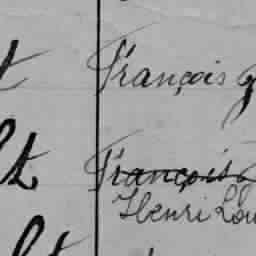 François
François
Henri Lou